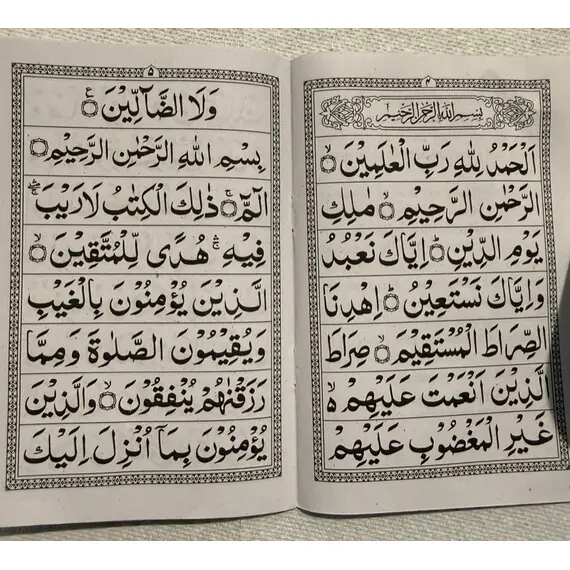 ٤
بِسْمِ اللهِ الرَّحْمٰنِ الرَّحِيْمِ
اَلْحَمْدُ لِلّٰهِ رَبِّ الْعٰلَمِيْنَ ۙ
الرَّحْمٰنِ الرَّحِيْمِ ۙ مٰلِكِ
يَوْمِ الدِّيْنِ ؕ اِيَّاكَ نَعْبُدُ
وَاِيَّاكَ نَسْتَعِيْنُ ؕ اِهْدِنَا
الصِّرَاطَ الْمُسْتَقِيْمَ ۙ صِرَاطَ
الَّذِيْنَ اَنْعَمْتَ عَلَيْهِمْ ۙ
غَيْرِ الْمَغْضُوْبِ عَلَيْهِمْ
۵
وَلَا الضَّآلِّيْنَ ۧ
بِسْمِ اللهِ الرَّحْمٰنِ الرَّحِيْمِ
الٓمّٓ ۚ ذٰلِكَ الْكِتٰبُ لَارَيْبَ ۛۚ
فِيْهِ ۛۚ هُدًى لِّلْمُتَّقِيْنَ ۙ
الَّذِيْنَ يُؤْمِنُوْنَ بِالْغَيْبِ
وَيُقِيْمُوْنَ الصَّلٰوةَ وَمِمَّا
رَزَقْنٰهُمْ يُنْفِقُوْنَ ۙ وَالَّذِيْنَ
يُؤْمِنُوْنَ بِمَآ اُنْزِلَ اِلَيْكَ